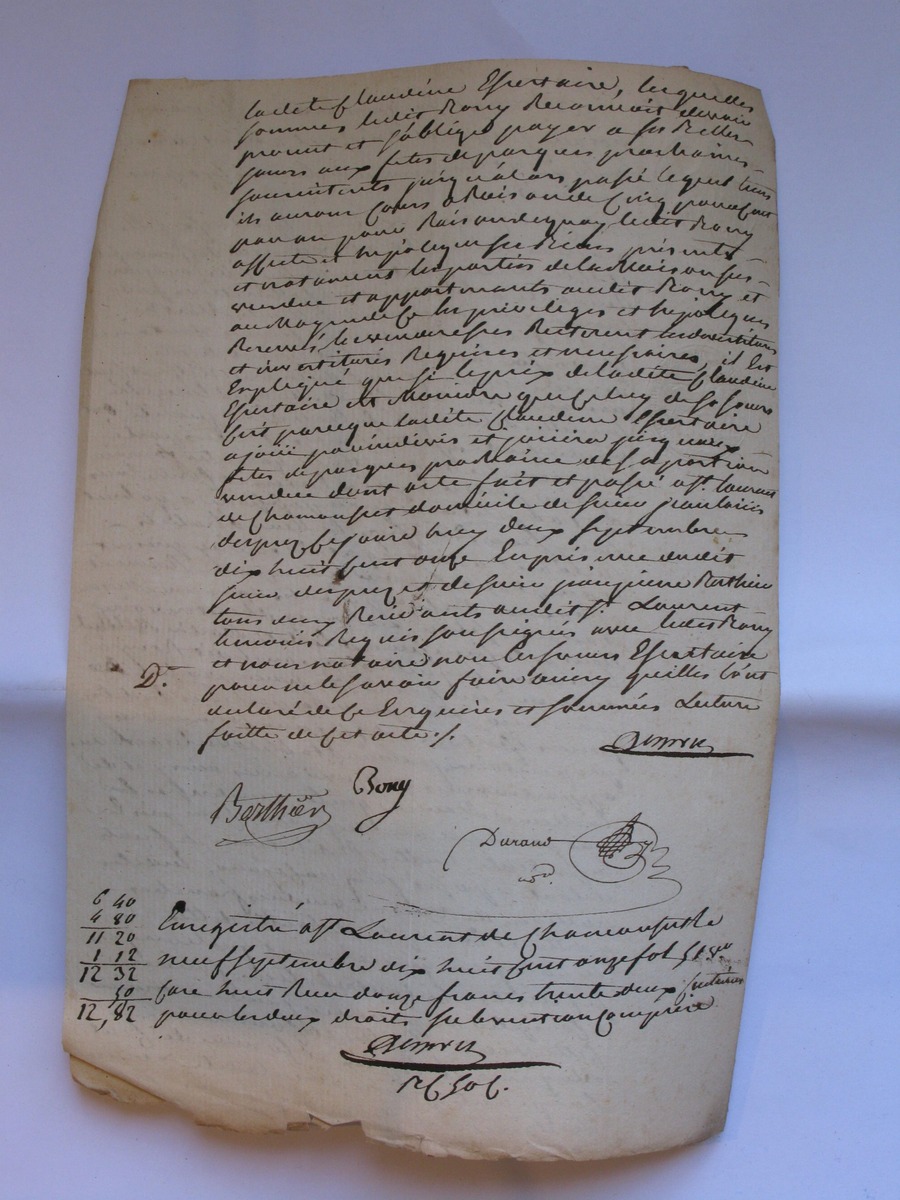 ladite Claudine Esertaire, lesquelles
sommes ledit Bony Reconnait devoir
promet et s'oblige payer a ses Belles
soeurs aux fetes de paques prochaines
sans interets jusqu'alors passé lequel tems
ils auront cours a Raison de Cinq pour cent
par an pour Raison de quoy ledit Bony
affecte et hypoteque ses Biens présents
et notament les parties de la Maison ses
vendue et appartenants audit Bony et
au Moyen de Ce les privileges et hypoteques
Reservés les venderesses devestitures
et investitures Requises et necessaires, il Est
Expliqué que si le prix de ladite Claudine
Esertaire est Moindre que Celuy de ses soeurs
C'est parceque ladite Claudine Esertaire
a joüi par indivis et joüira jusqu'aux
fetes de paques prochaine de sa portion
vendue dont acte fait et passé a St. Laurent
de Chamousset domicile de sieur jean louis
desprez Ce jourd'huy deux septembre
dix huit Cent onze En présence dudit
sieur desprez et de sieur jean pierre Berthier
tous deux Residants audit St. Laurent
temoins Requis soussignés avec ledit Bony
et nous notaire non les soeurs Esertaire
pour ne le savoir faire ainsy qu'elles l'ont
declaré de Ce Enquises et sommées Lecture
faitte de Cet acte ./.
D.
Berthier
Bony
Durand
not.
6 40
4 80
11 20
1 12
12 32
50
12,82
Enregistré a St Laurent de Chamousset le
neuf septembre dix huit Cent onze fol 51 v.
Case huit Reçu douze francs trente deux Centimes
pour les deux droits subvention Comprise